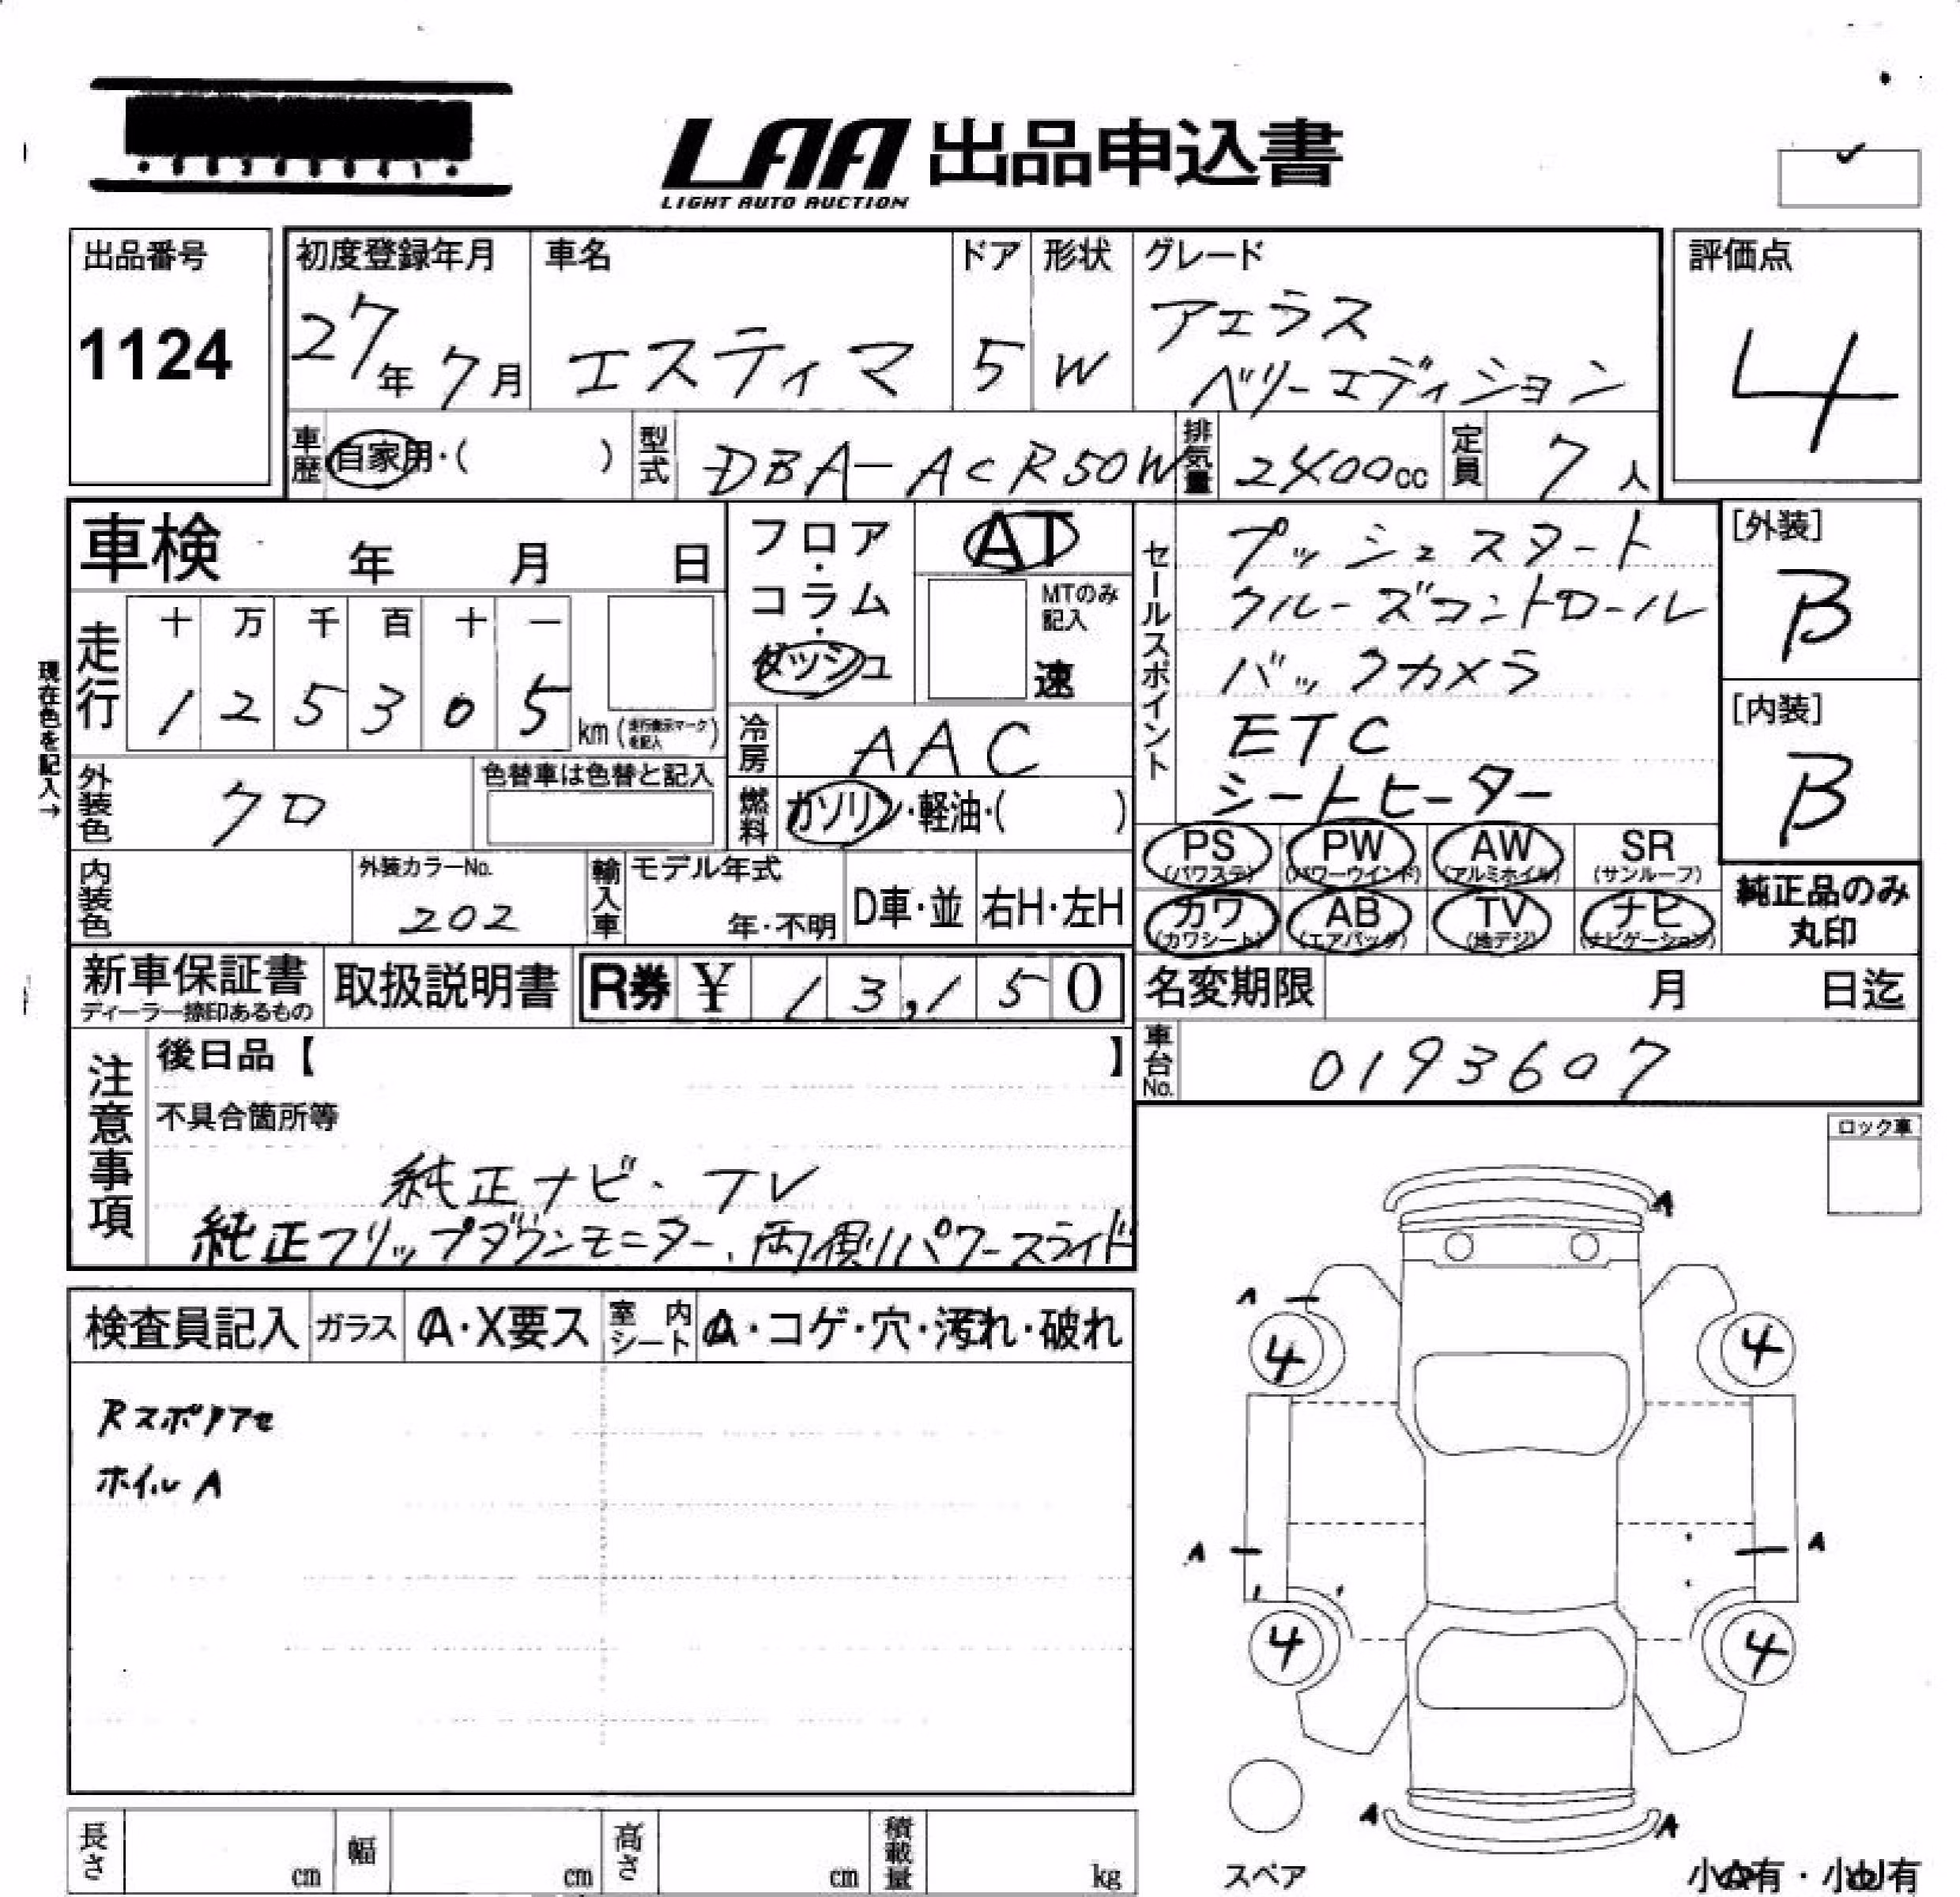 LAA 出品申込書
LIGHT AUTO AUCTION
出品番号
1124
初度登録年月
27年 7月
車名
エスティマ
ドア
5
形状
W
グレード
アエラス
ベリーエディション
評価点
4
車歴 自家用・( )
型式 DBA-ACR50W
排気量 2400cc
定員 7人
車検 年 月 日
フロア・コラム・ダッシュ
AT
MTのみ記入
速
走行
十 万 千 百 十 一
1 2 5 3 0 5 km (走行表示マークを記入)
現在色を記入→
冷房 AAC
外装色 クロ
色替車は色替と記入
燃料 ガソリン・軽油・( )
セールスポイント
プッシュスタート
クルーズコントロール
バックカメラ
ETC
シートヒーター
[外装]
B
[内装]
B
PS (パワステ)
PW (パワーウインド)
AW (アルミホイル)
SR (サンルーフ)
カワ (カワシート)
AB (エアバッグ)
TV (地デジ)
ナビ (ナビゲーション)
純正品のみ
丸印
内装色
外装カラーNo.
202
輸入車
モデル年式
年・不明
D車・並
右H・左H
新車保証書
ディーラー捺印あるもの
取扱説明書
R券 ¥ 13,150
名変期限 月 日迄
車台No. 0193607
注意事項
後日品【 】
不具合箇所等
純正ナビ・TV
純正フリップダウンモニター、両側パワースライド
ロック車
検査員記入
ガラス A・X要ス
室内シート A・コゲ・穴・汚れ・破れ
ホイルA
A
A
4
4
A
A
4
4
A
A
スペア
小A有・小U有
長さ cm
幅 cm
高さ cm
積載量 kg